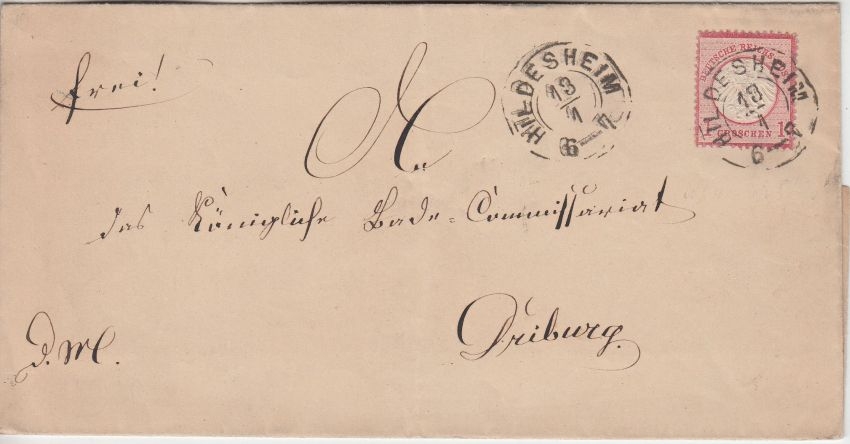 frei!
HILDESHEIM
13/1
6-7
DEUTSCHE REICHS
1 GROSCHEN 1
HILDESHEIM
13/1
6-7
An
das Königliche Bade-Commissariat
Driburg.
d. M.